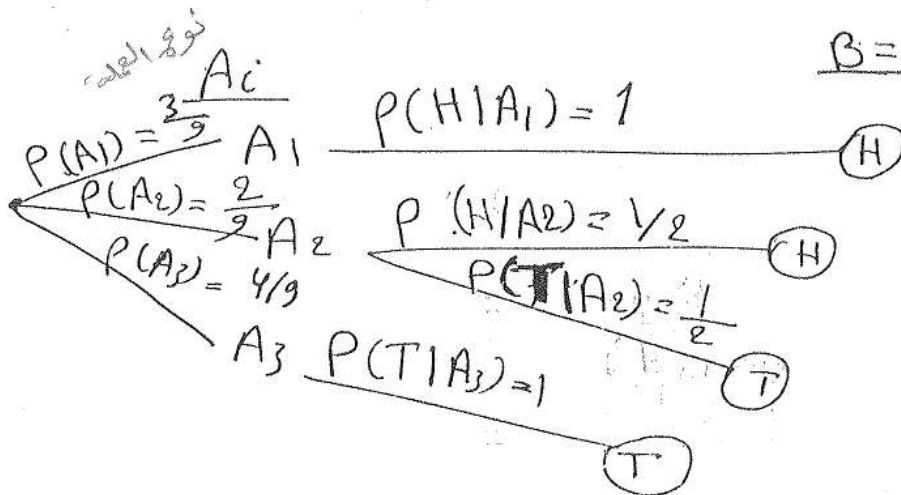 نوع العملة
Ai
B =
P(A1) = 3/9 A1 P(H|A1) = 1 H
P(A2) = 2/9 A2 P(H|A2) = 1/2 H
P(T|A2) = 1/2 T
P(A3) = 4/9 A3 P(T|A3) = 1 T